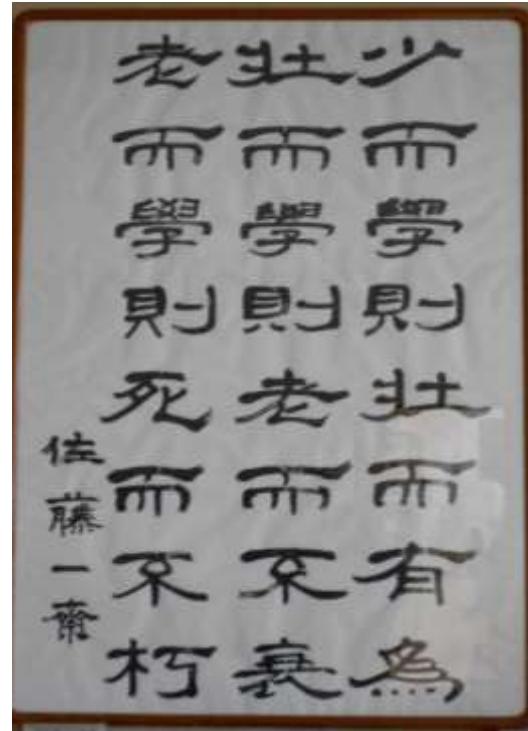 少而學則壯而有為
壯而學則老而不衰
老而學則死而不朽
佐藤一齋